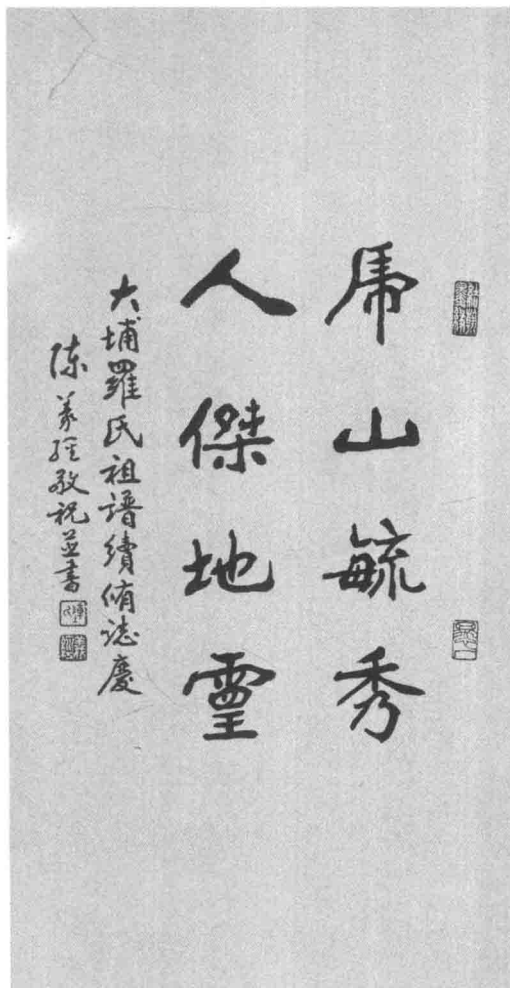 虎山毓秀
人傑地靈
大埔羅氏祖譜續脩誌慶
陳義經敬祝並書